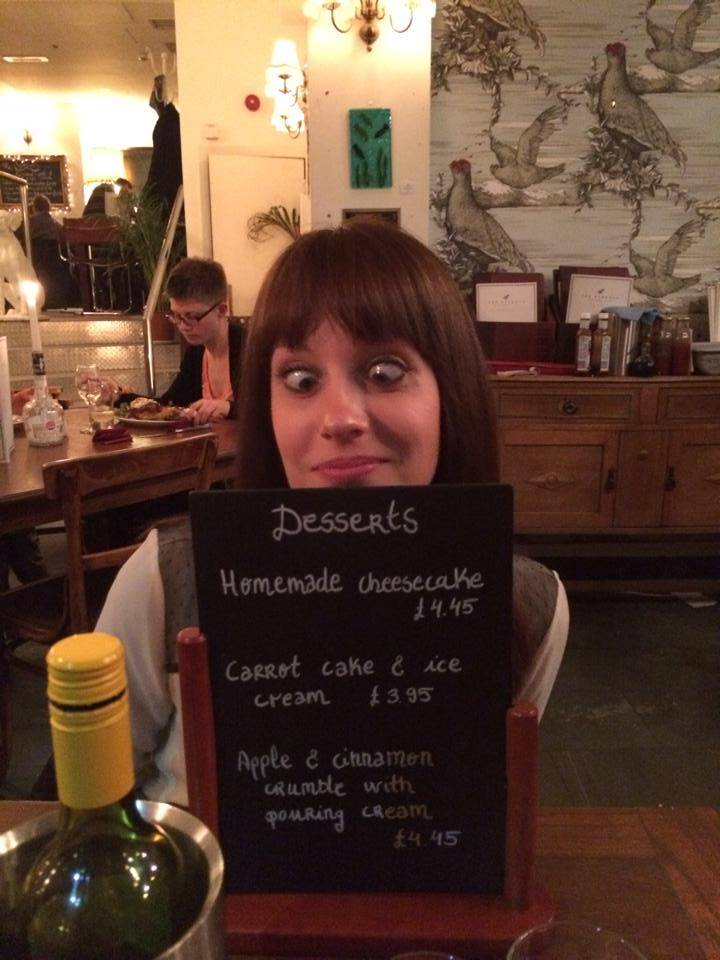 Desserts
Homemade cheesecake
£4.45
Carrot cake & ice
cream £3.95
Apple & cinnamon
crumble with
pouring cream
£4.45